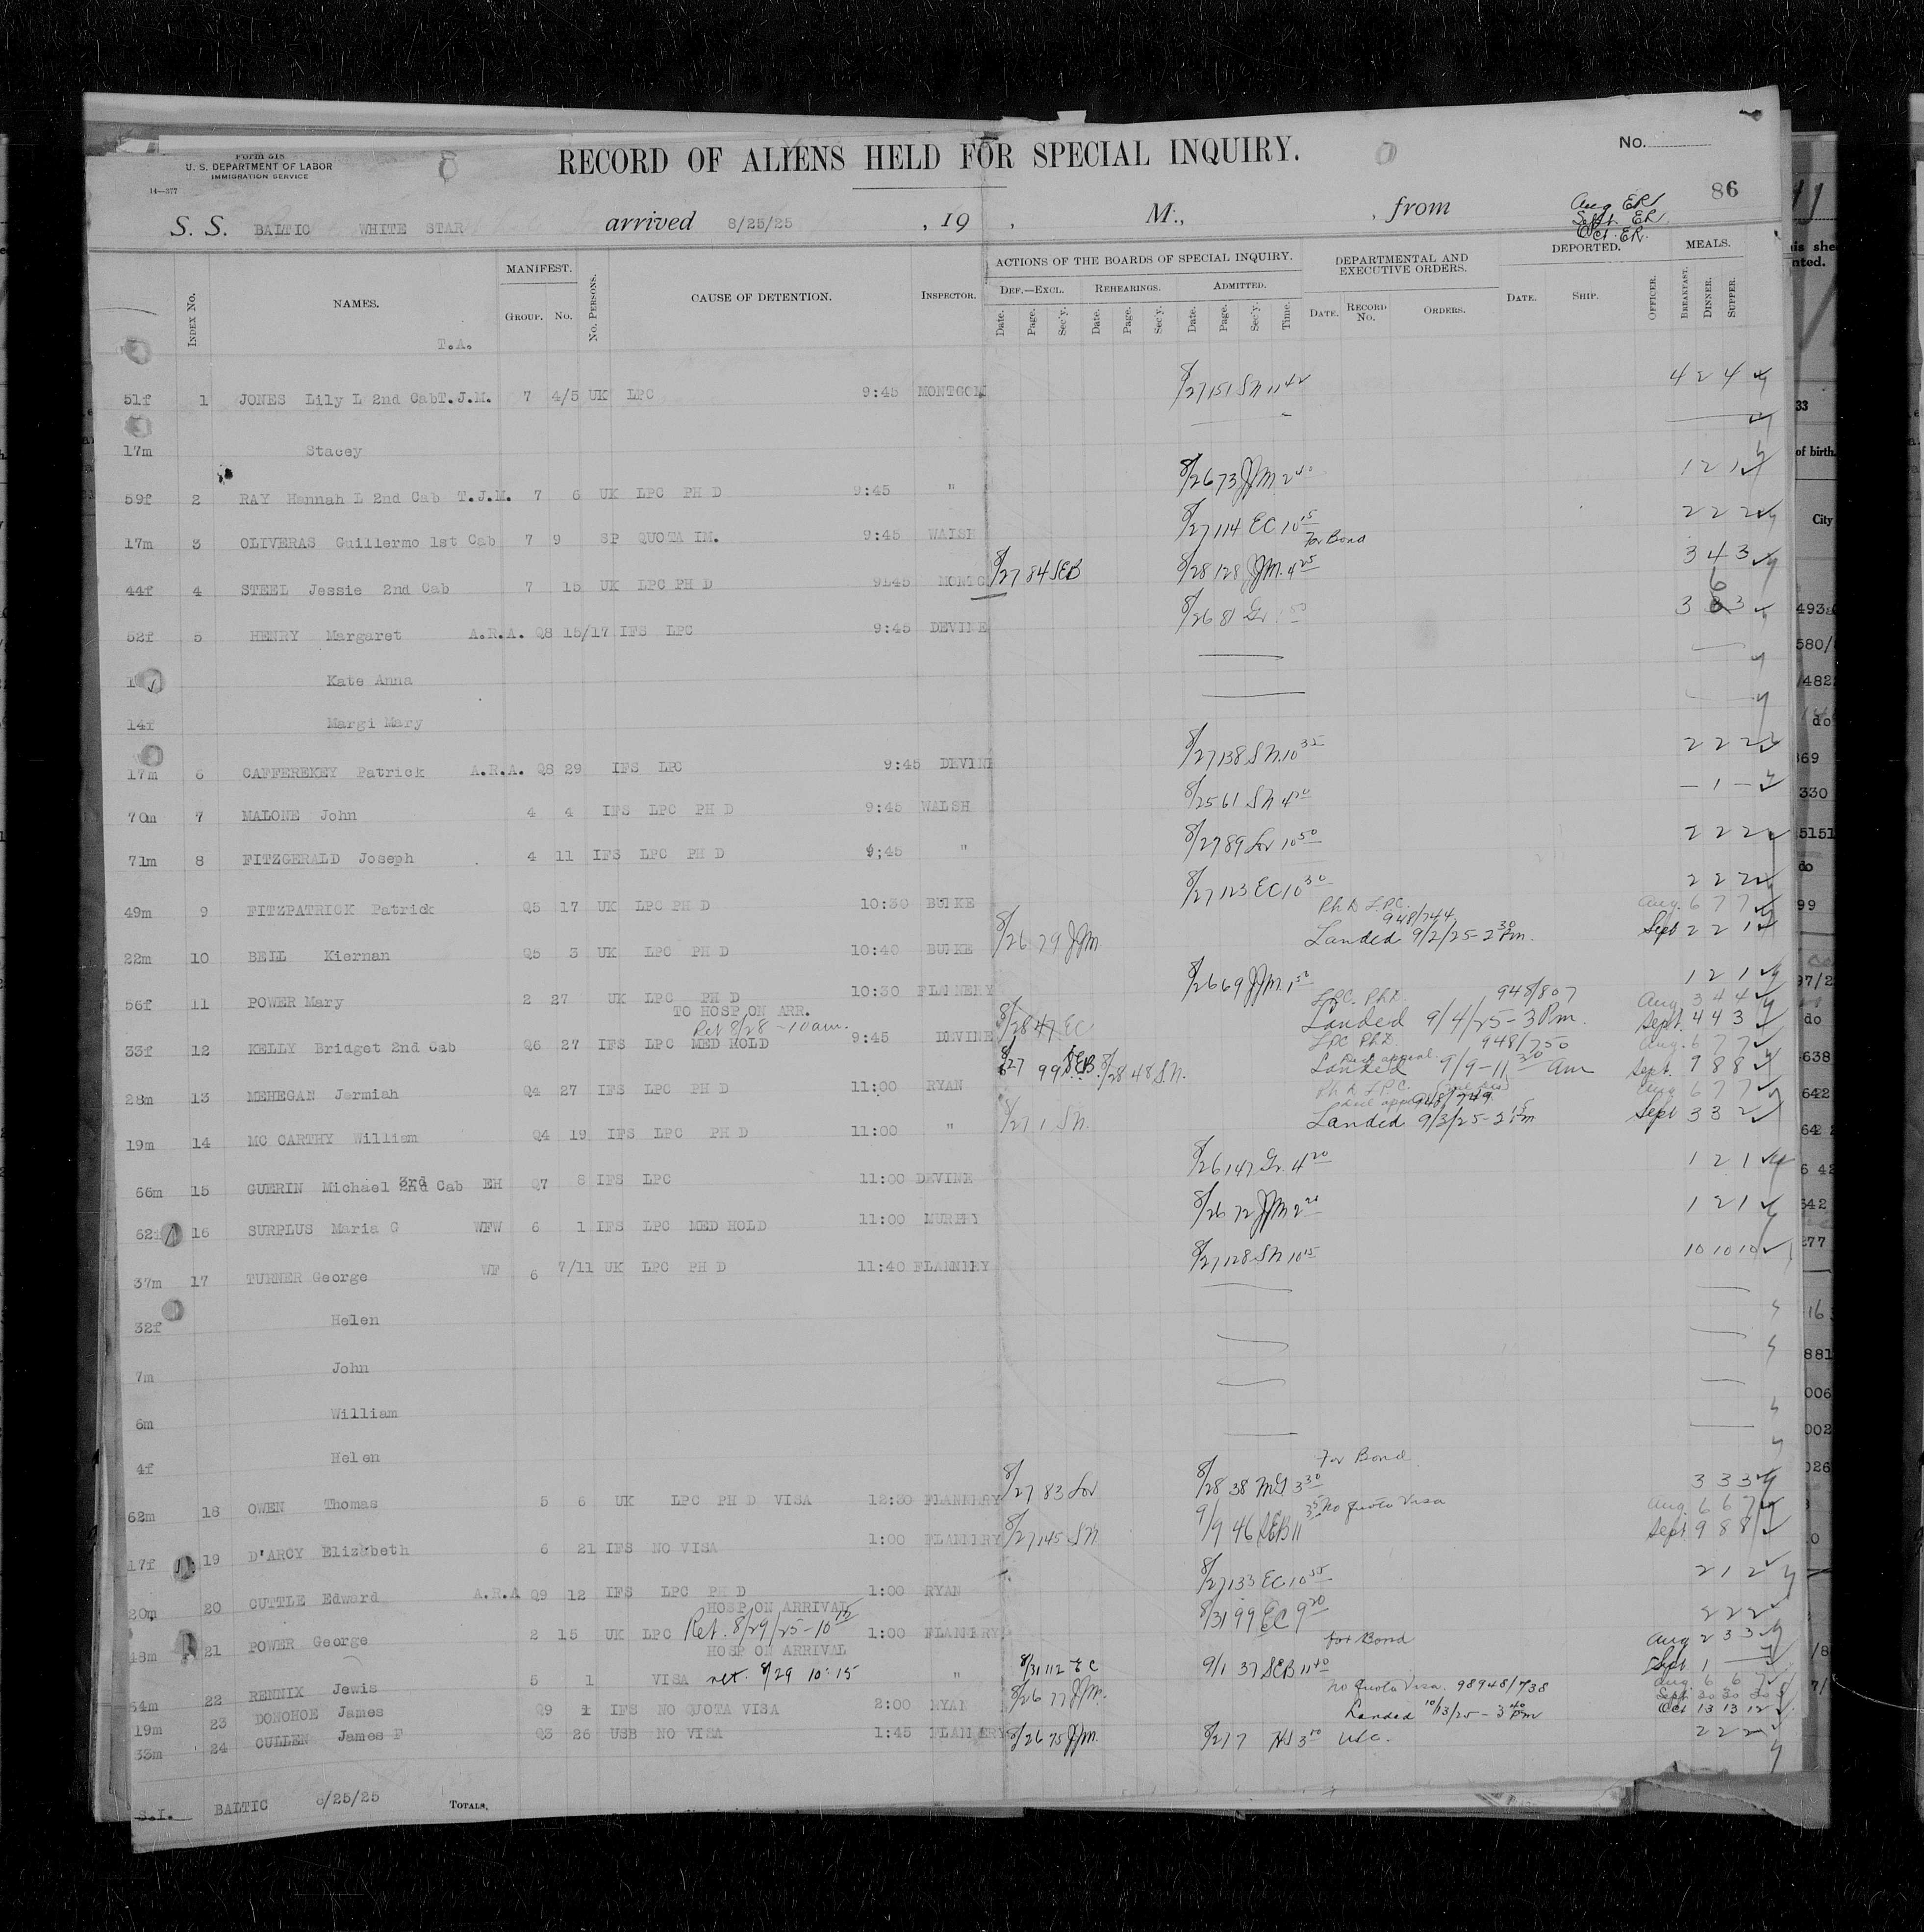 Form 518
U. S. DEPARTMENT OF LABOR
IMMIGRATION SERVICE
14—377
RECORD OF ALIENS HELD FOR SPECIAL INQUIRY.
No.
86
S. S. BALTIC WHITE STAR arrived 8/25/25 , 19 , M., , from
Aug ER
Sept. ER
Oct. ER.
INDEX No. NAMES. MANIFEST. GROUP. No. No. PERSONS. CAUSE OF DETENTION. INSPECTOR. ACTIONS OF THE BOARDS OF SPECIAL INQUIRY. DEPARTMENTAL AND EXECUTIVE ORDERS. DEPORTED. MEALS.
DEF.—EXCL. REHEARINGS. ADMITTED. DATE. RECORD No. ORDERS. DATE. SHIP. OFFICER. BREAKFAST. DINNER. SUPPER.
Date. Page. Sec'y. Date. Page. Sec'y. Date. Page. Sec'y. Time.
T.A.
51f 1 JONES Lily L 2nd Cab T.J.M. 7 4/5 UK LPC 9:45 MONTGOM 8/27 151 SN 11 42 4 2 4
17m Stacey
59f 2 RAY Hannah L 2nd Cab T.J.M. 7 6 UK LPC PH D 9:45 " 8/26 73 JJM 2 40 1 2 1
17m 3 OLIVERAS Guillermo 1st Cab 7 9 SP QUOTA IM. 9:45 WALSH 8/27 114 EC 10 15 2 2 2
For Bond
44f 4 STEEL Jessie 2nd Cab 7 15 UK LPC PH D 9:45 MONTG 8/27 84 SEB 8/28 128 JJM 4 25 3 4 3
52f 5 HENRY Margaret A.R.A. Q8 15/17 IFS LPC 9:45 DEVINE 8/26 81 Gr 3 6 3
Kate Anna
14f Margi Mary
17m 6 CAFFEREKEY Patrick A.R.A. Q8 29 IFS LPC 9:45 DEVINE 8/27 138 SN 10 35 2 2 2
70m 7 MALONE John 4 4 IFS LPC PH D 9:45 WALSH 8/25 61 SN 4 20 – 1 –
71m 8 FITZGERALD Joseph 4 11 IFS LPC PH D 9:45 " 8/27 89 Lor 10 50 2 2 2
49m 9 FITZPATRICK Patrick Q5 17 UK LPC PH D 10:30 BURKE 8/27 123 EC 10 30 2 2 2
Ph D LPC. 948/744 Aug. 6 7 7
22m 10 BELL Kiernan Q5 3 UK LPC PH D 10:40 BURKE 8/26 79 JJM Landed 9/2/25 - 2 30 Pm. Sept 2 2 1
56f 11 POWER Mary 2 27 UK LPC PH D 10:30 FLANNERY 8/26 69 JJM 1 50 1 2 1
TO HOSP ON ARR.
Ret 8/28 - 10 am.
LPC. PhD. 948/807 Aug 3 4 4
33f 12 KELLY Bridget 2nd Cab Q6 27 IFS LPC MED HOLD 9:45 DEVINE 8/28 47 EC Landed 9/4/25 - 3 Pm. Sept. 4 4 3
LPC PhD. 948/750 Aug. 6 7 7
28m 13 MEHEGAN Jermiah Q4 27 IFS LPC PH D 11:00 RYAN 8/27 99 SEB 8/28 48 SN. Landed 9/9 - 11 30 Am Sept. 9 8 8
Ph D LPC. 948/749 Aug 6 7 7
19m 14 MC CARTHY William Q4 19 IFS LPC PH D 11:00 " 8/27 1 SN. Landed 9/3/25 - 2 15 Pm Sept 3 3 2
66m 15 GUERIN Michael 3rd Cab EH Q7 8 IFS LPC 11:00 DEVINE 8/26 147 Gr. 4 20 1 2 1
62f 16 SURPLUS Maria G WFW 6 1 IFS LPC MED HOLD 11:00 MURPHY 8/26 72 JJM 2 20 1 2 1
37m 17 TURNER George WF 6 7/11 UK LPC PH D 11:40 FLANNERY 8/27 128 SN 10 15 10 10 10
32f Helen
7m John
6m William
4f Helen
For Bond
62m 18 OWEN Thomas 5 6 UK LPC PH D VISA 12:30 FLANNERY 8/27 83 Lor 8/28 38 3 30 3 3 3
No Quota Visa Aug 6 6 7
17f 19 D'ARCY Elizabeth 6 21 IFS NO VISA 1:00 FLANNERY 8/27 145 SN 9/9 46 SEB 11 35 Sept 9 8 8
20m 20 CUTTLE Edward A.R.A Q9 12 IFS LPC PH D 1:00 RYAN 8/27 133 EC 10 55 2 1 2
HOSP ON ARRIVAL
48m 21 POWER George 2 15 UK LPC Ret. 8/29/25 - 10 15 1:00 FLANNERY 8/31 99 EC 9 20 2 2 2
HOSP ON ARRIVAL For Bond Aug 2 3 3
54m 22 RENNIX Jewis 5 1 VISA ret. 8/29 10:15 " 8/31 112 EC 9/1 37 SEB 11 40 Sept 1
No Quota Visa. 98948/738 Aug. 6 6 7
Sept. 30 30 30
19m 23 DONOHOE James Q9 1 IFS NO QUOTA VISA 2:00 RYAN 8/26 77 JJM. Landed 10/13/25 - 3 40 Pm Oct 13 13 12
33m 24 CULLEN James F Q3 26 USB NO VISA 1:45 FLANNERY 8/26 75 JJM. 8/27 7 3 50 USC. 2 2 2
S.I. BALTIC 8/25/25 TOTALS,